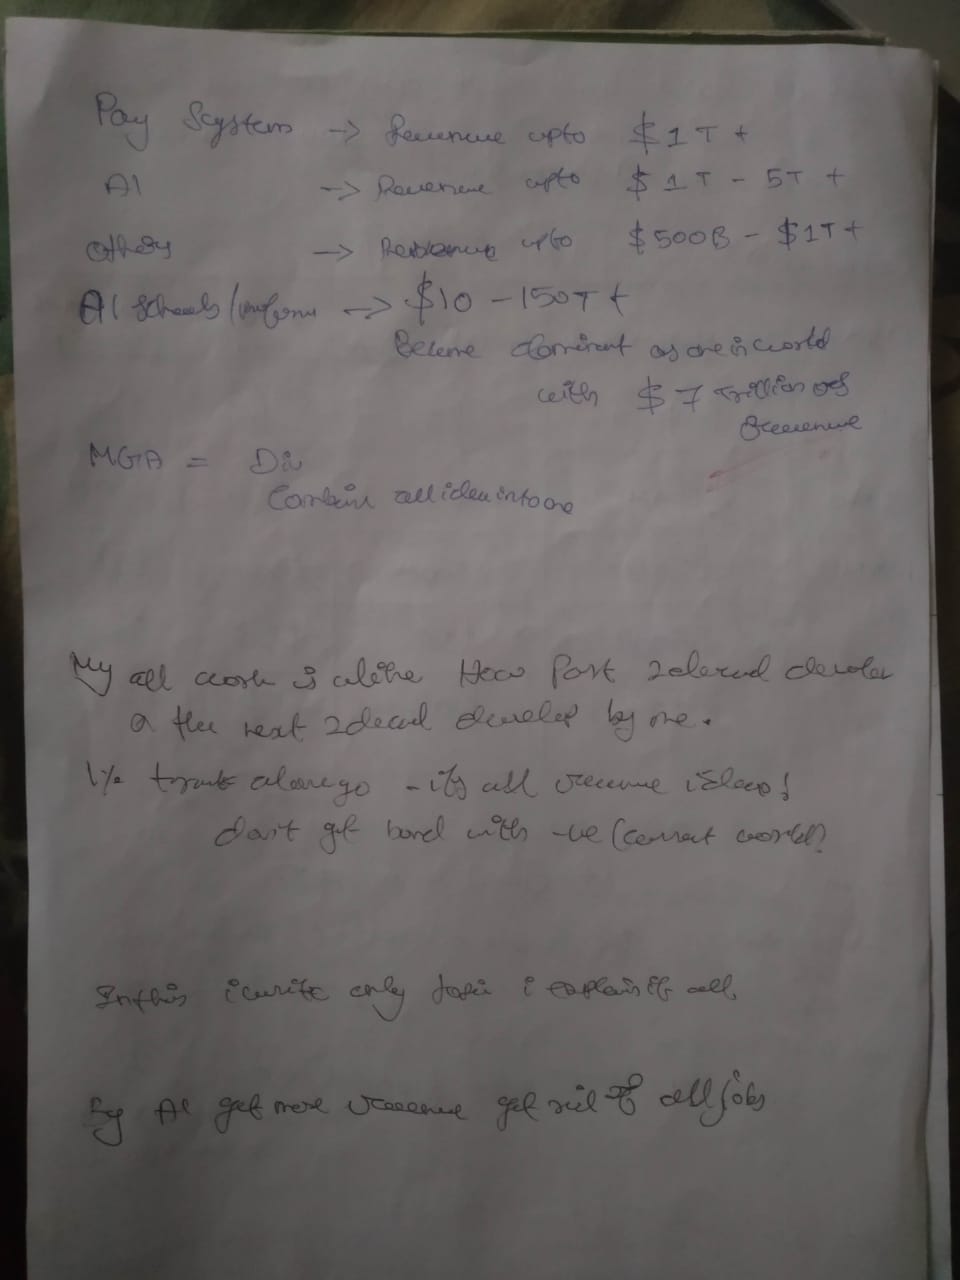 Pay System -> Revenue upto $1T +
AI -> Revenue upto $1T - 5T +
Others -> Revenue upto $500B - $1T +
AI Schools / -> $10 - 150T +
Become dominant as one in world
with $7 Trillion of
Revenue
MGA =
all idea into one
My all work is How Past develop
the next develop by me.
1% - its all revenue
don't get with -ve (current world)
In this i write only i explain it all,
By AI get more revenue get rid of all jobs